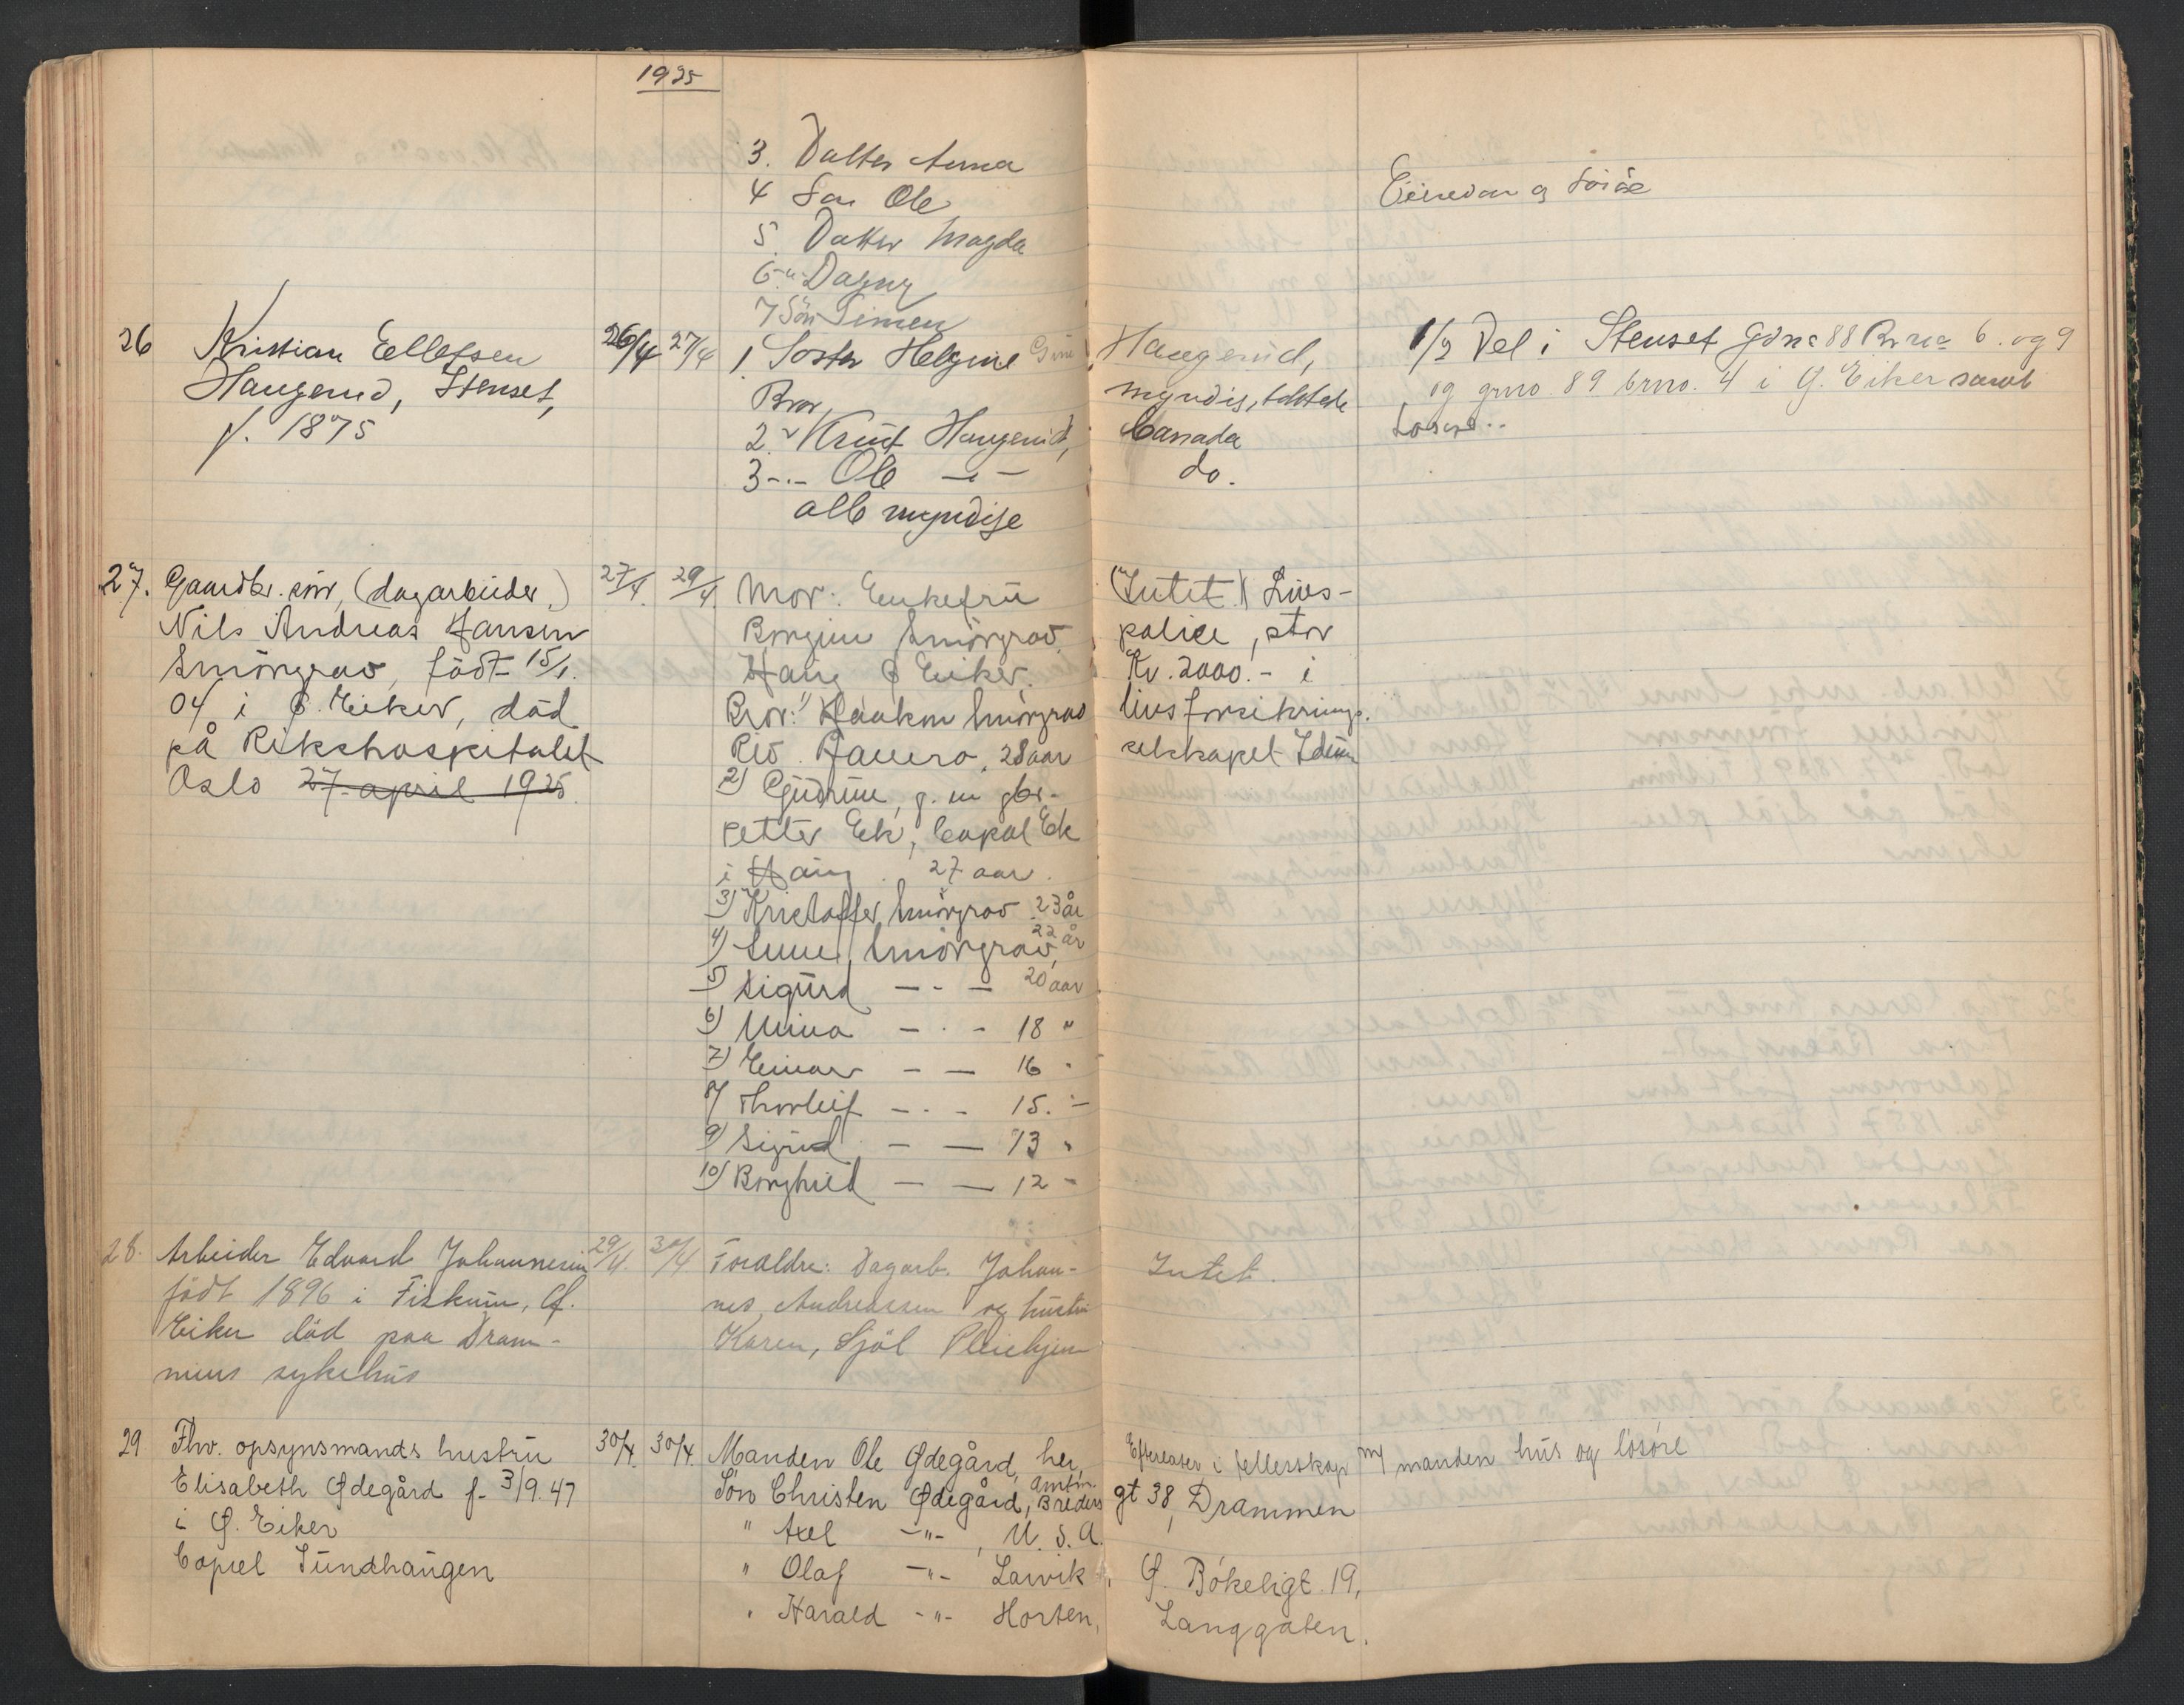 1925
3. Datter Anna
4 Søn Ole
5. Datter Magda
6 -"- Dagny
7 Søn Simen
Eiendom og Løsøre
26 Kristian Ellefsen 26/4 27/4 1. Søster Helgine Haugerud, 1/2 Del i Stenset Gdno 88 Brno 6. og 9
Haugerud, Stenset, Bror, myndig, tilstede og grno. 89 brno. 4 i Ø. Eiker samt
f. 1875 2. Knut Haugerud, Canada Løsøre..
3 -.- Ole -"- do.
alle myndige
27. Gaardbr. søn, (dagarbeider.) 27/4. 29/4. Mor: Enkefru (Intet.) Livs-
Nils Andreas Hansen Borgine Smörgrav, police, stor
Smörgrav, födt 15/1. Haug Ø Eiker. Kr. 2000.- i
04 i Ø. Eiker, död Bror: 1) Haakon Smörgrav livsforsikrings.
på Rikshospitalet 28 aar selskapet Idun
Oslo 27. april 1925. 2) Gudrun, g. m gbr.
Petter Ek, Copal Ek
i Haug. 27 aar.
3) Kristoffer Smörgrav 23 år
4) Smörgrav, 22 år
5) Sigurd - . - 20 aar
6) Mina - . - 18 "
7) Einar - - 16 "
8) Thorleif - . - 15. "
9) Sigrid - - 13 "
10) Borghild - - 12 "
28. Arbeider Edvard Johannesen 29/4. 30/4 Foraldre: Dagarb. Johan- Intet.
födt 1896 i Fiskum, Ø. nes Andreassen og hustru
Eiker död paa Dram- Karen, Sjöl Pleiehjem
mens sykehus
29 Fhv. opsynsmands hustru 30/4. 30/4. Manden Ole Ødegård, her, Efterlater i fellerskap m/ manden hus og lösöre
Elisabeth Ødegård f. 3/9.47 Søn Christen Ødegård, Amtm. Breders gt 38, Drammen
i Ø. Eiker " Axel -"- , U. S. A.
Copiel Sundhaugen " Olaf -"- Larvik, Ø. Bökeligt. 19,
" Harald -"- Horten, Langgaten.